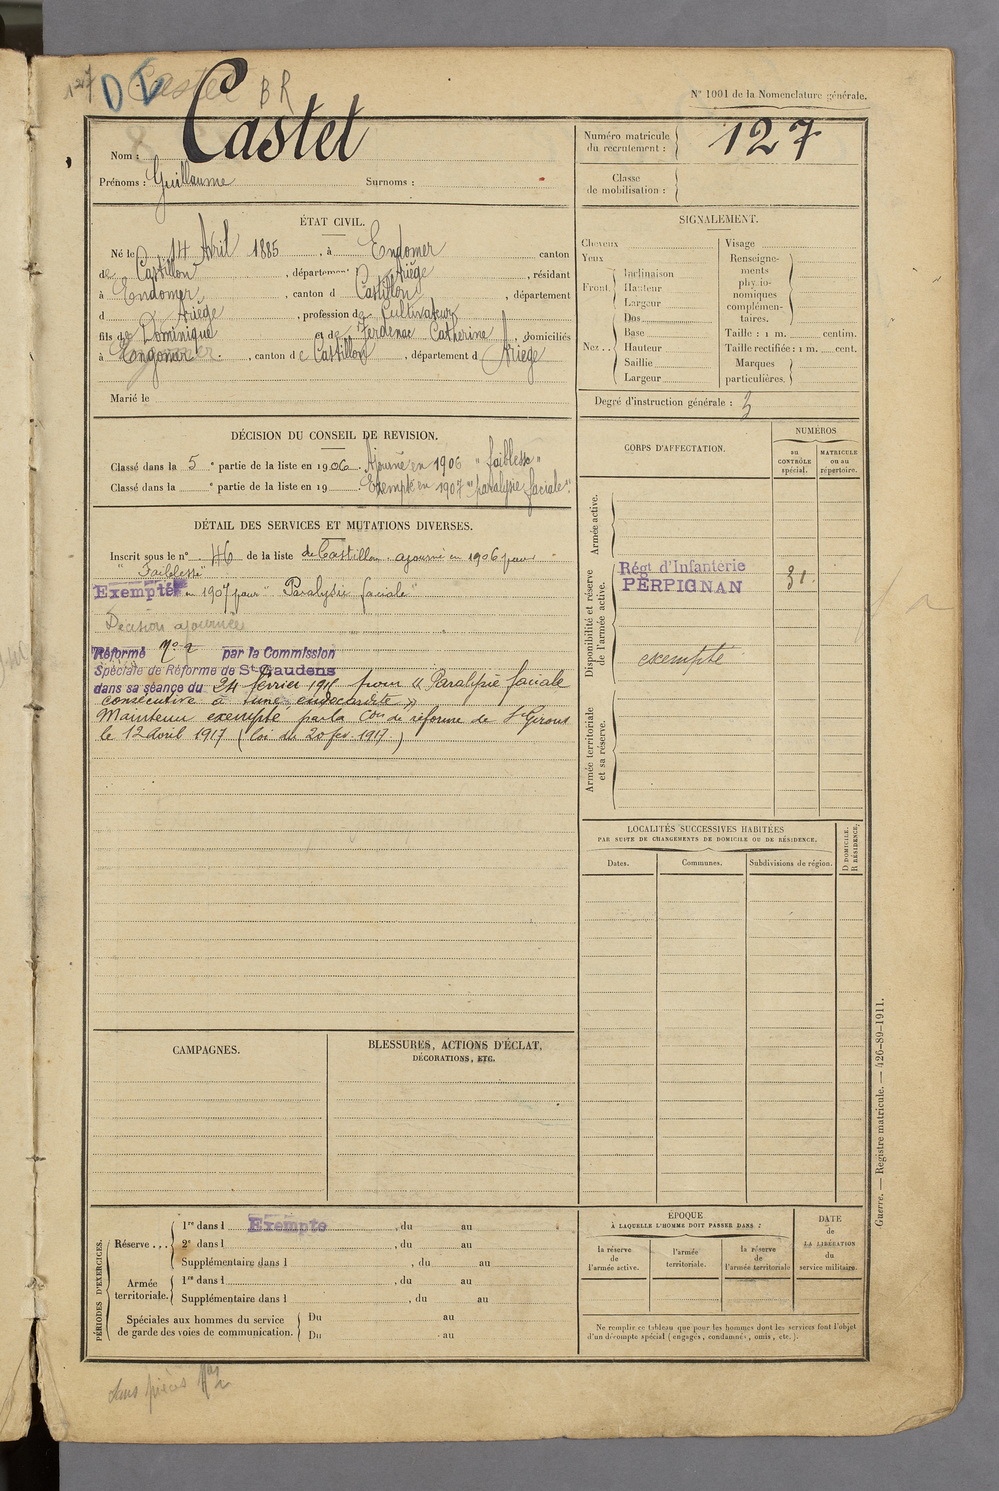 127 Castet BR
N° 1001 de la Nomenclature générale.
Castet
Nom :
Prénoms : Guillaume Surnoms :
Numéro matricule du recrutement : 127
Classe de mobilisation :
ÉTAT CIVIL.
Né le 14 Avril 1885, à Endomer canton
de Castillon, département Ariège, résidant
à Endomer, canton d Castillon, département
d Ariège, profession de Cultivateur
fils de Dominique et de Ferdenac Catherine, domiciliés
à Engomer, canton de Castillon, département d Ariège
Marié le
SIGNALEMENT.
Cheveux
Yeux
Front
Inclinaison
Hauteur
Largeur
Nez ..
Dos
Base
Hauteur
Saillie
Largeur
Visage
Renseigne-
ments
physio-
nomiques
complémen-
taires.
Taille : 1 m. centim.
Taille rectifiée : 1 m. cent.
Marques
particulières.
Degré d'instruction générale : 3
DÉCISION DU CONSEIL DE REVISION.
Classé dans la 5e partie de la liste en 1906. Ajourné en 1906 "faiblesse"
Classé dans la e partie de la liste en 19 Exempté en 1907 "paralysie faciale".
DÉTAIL DES SERVICES ET MUTATIONS DIVERSES.
Inscrit sous le n° 46 de la liste de Castillon. ajourné en 1906 pour
"Faiblesse"
Exempté en 1907 pour "Paralysie faciale"
Décision ajournée
Réformé No 2 par la Commission
Spéciale de Réforme de St Gaudens
dans sa séance du 24 février 1916 pour "Paralysie faciale
consécutive à une endocardite"
Maintenu exempté par la Con de réforme de St Girons
le 12 avril 1917 (loi du 20 fév. 1917)
CORPS D'AFFECTATION.
NUMÉROS
au CONTRÔLE spécial.
MATRICULE ou au répertoire.
Armée active.
Disponibilité et réserve de l'armée active.
Régt d'Infanterie
PERPIGNAN
31.
exempté
Armée territoriale et sa réserve.
LOCALITÉS SUCCESSIVES HABITÉES
PAR SUITE DE CHANGEMENTS DE DOMICILE OU DE RÉSIDENCE.
Dates.
Communes.
Subdivisions de région.
D DOMICILE.
R RÉSIDENCE.
CAMPAGNES.
BLESSURES, ACTIONS D'ÉCLAT,
DÉCORATIONS, ETC.
PÉRIODES D'EXERCICES.
Réserve ...
1re dans l Exempté, du au
2e dans l , du au
Supplémentaire dans l , du au
Armée territoriale.
1re dans l , du au
Supplémentaire dans l , du au
Spéciales aux hommes du service
de garde des voies de communication.
Du au
Du au
ÉPOQUE
À LAQUELLE L'HOMME DOIT PASSER DANS :
la réserve
de
l'armée active.
l'armée
territoriale.
la réserve
de
l'armée territoriale
DATE
de
LA LIBÉRATION
du
service militaire.
Ne remplir ce tableau que pour les hommes dont les services font l'objet
d'un décompte spécial (engagés, condamnés, omis, etc.).
Guerre. — Registre matricule. — 426-89-1911.